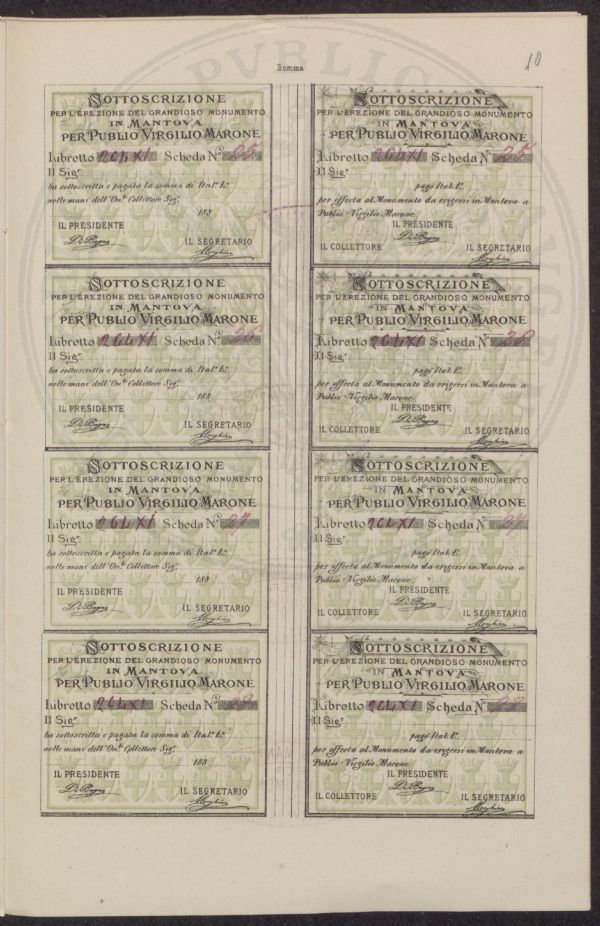 Somma
18
SOTTOSCRIZIONE
PER L'EREZIONE DEL GRANDIOSO MONUMENTO
IN MANTOVA
PER PUBLIO VIRGILIO MARONE
Libretto Scheda N.º 25
Il Sig.r
ha sottoscritta e pagata la somma di Ital. L.e
nelle mani dell'On.le Collettore Sig.r
188
IL PRESIDENTE
IL SEGRETARIO
SOTTOSCRIZIONE
PER L'EREZIONE DEL GRANDIOSO MONUMENTO
IN MANTOVA
PER PUBLIO VIRGILIO MARONE
Libretto Scheda N.º 25
Il Sig.r
pagò Ital. L.e
per offerta al Monumento da erigersi in Mantova a
Publio Virgilio Marone
IL PRESIDENTE
IL COLLETTORE
IL SEGRETARIO
SOTTOSCRIZIONE
PER L'EREZIONE DEL GRANDIOSO MONUMENTO
IN MANTOVA
PER PUBLIO VIRGILIO MARONE
Libretto Scheda N.º 26
Il Sig.r
ha sottoscritta e pagata la somma di Ital. L.e
nelle mani dell'On.le Collettore Sig.r
188
IL PRESIDENTE
IL SEGRETARIO
SOTTOSCRIZIONE
PER L'EREZIONE DEL GRANDIOSO MONUMENTO
IN MANTOVA
PER PUBLIO VIRGILIO MARONE
Libretto Scheda N.º
Il Sig.r
pagò Ital. L.e
per offerta al Monumento da erigersi in Mantova a
Publio Virgilio Marone
IL PRESIDENTE
IL COLLETTORE
IL SEGRETARIO
SOTTOSCRIZIONE
PER L'EREZIONE DEL GRANDIOSO MONUMENTO
IN MANTOVA
PER PUBLIO VIRGILIO MARONE
Libretto Scheda N.º 27
Il Sig.r
ha sottoscritta e pagata la somma di Ital. L.e
nelle mani dell'On.le Collettore Sig.r
188
IL PRESIDENTE
IL SEGRETARIO
SOTTOSCRIZIONE
PER L'EREZIONE DEL GRANDIOSO MONUMENTO
IN MANTOVA
PER PUBLIO VIRGILIO MARONE
Libretto Scheda N.º 27
Il Sig.r
pagò Ital. L.e
per offerta al Monumento da erigersi in Mantova a
Publio Virgilio Marone
IL PRESIDENTE
IL COLLETTORE
IL SEGRETARIO
SOTTOSCRIZIONE
PER L'EREZIONE DEL GRANDIOSO MONUMENTO
IN MANTOVA
PER PUBLIO VIRGILIO MARONE
Libretto Scheda N.º 28
Il Sig.r
ha sottoscritta e pagata la somma di Ital. L.e
nelle mani dell'On.le Collettore Sig.r
188
IL PRESIDENTE
IL SEGRETARIO
SOTTOSCRIZIONE
PER L'EREZIONE DEL GRANDIOSO MONUMENTO
IN MANTOVA
PER PUBLIO VIRGILIO MARONE
Libretto Scheda N.º 28
Il Sig.r
pagò Ital. L.e
per offerta al Monumento da erigersi in Mantova a
Publio Virgilio Marone
IL PRESIDENTE
IL COLLETTORE
IL SEGRETARIO